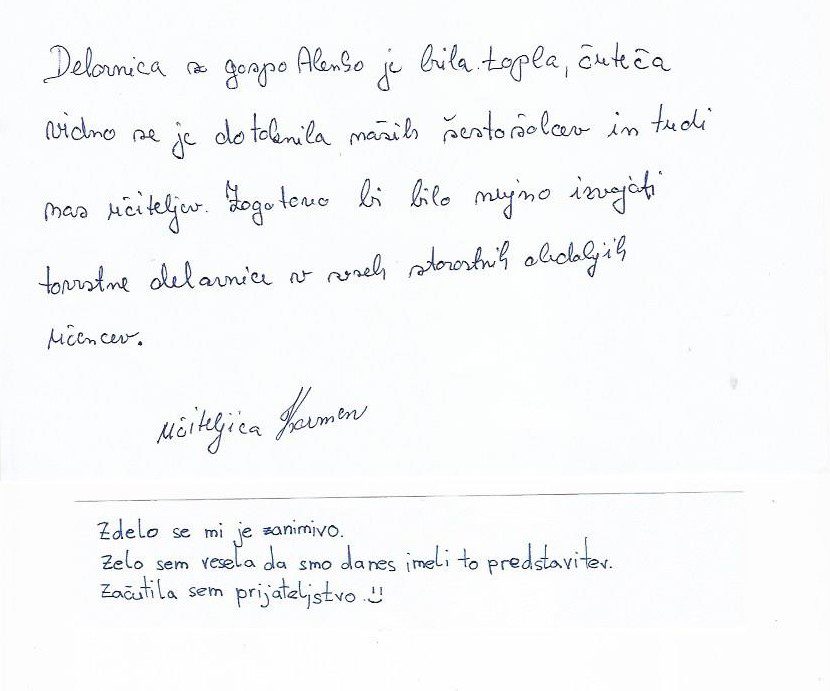 Delavnica z gospo Alenko je bila topla, čuteča
vidno se je dotaknila naših šestošolcev in tudi
nas učiteljev. Zagotovo bi bilo nujno izvajati
tovrstne delavnice v vseh starostnih obdobjih
učencev.
učiteljica Karmen
Zdelo se mi je zanimivo.
Zelo sem vesela da smo danes imeli to predstavitev.
Začutila sem prijateljstvo. :)